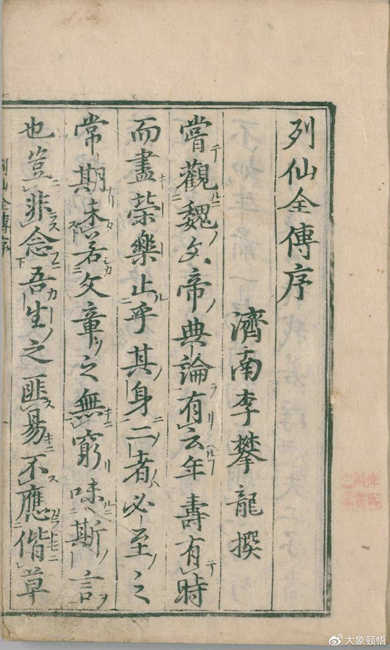 列仙全傳序
濟南李攀龍撰
嘗觀魏文帝典論有云年壽有時
而盡榮樂止乎其身二者必至之
常期未若文章之無窮味斯言
也豈非念吾生之匪易不應偕草
列仙全傳序
@大象顿悟